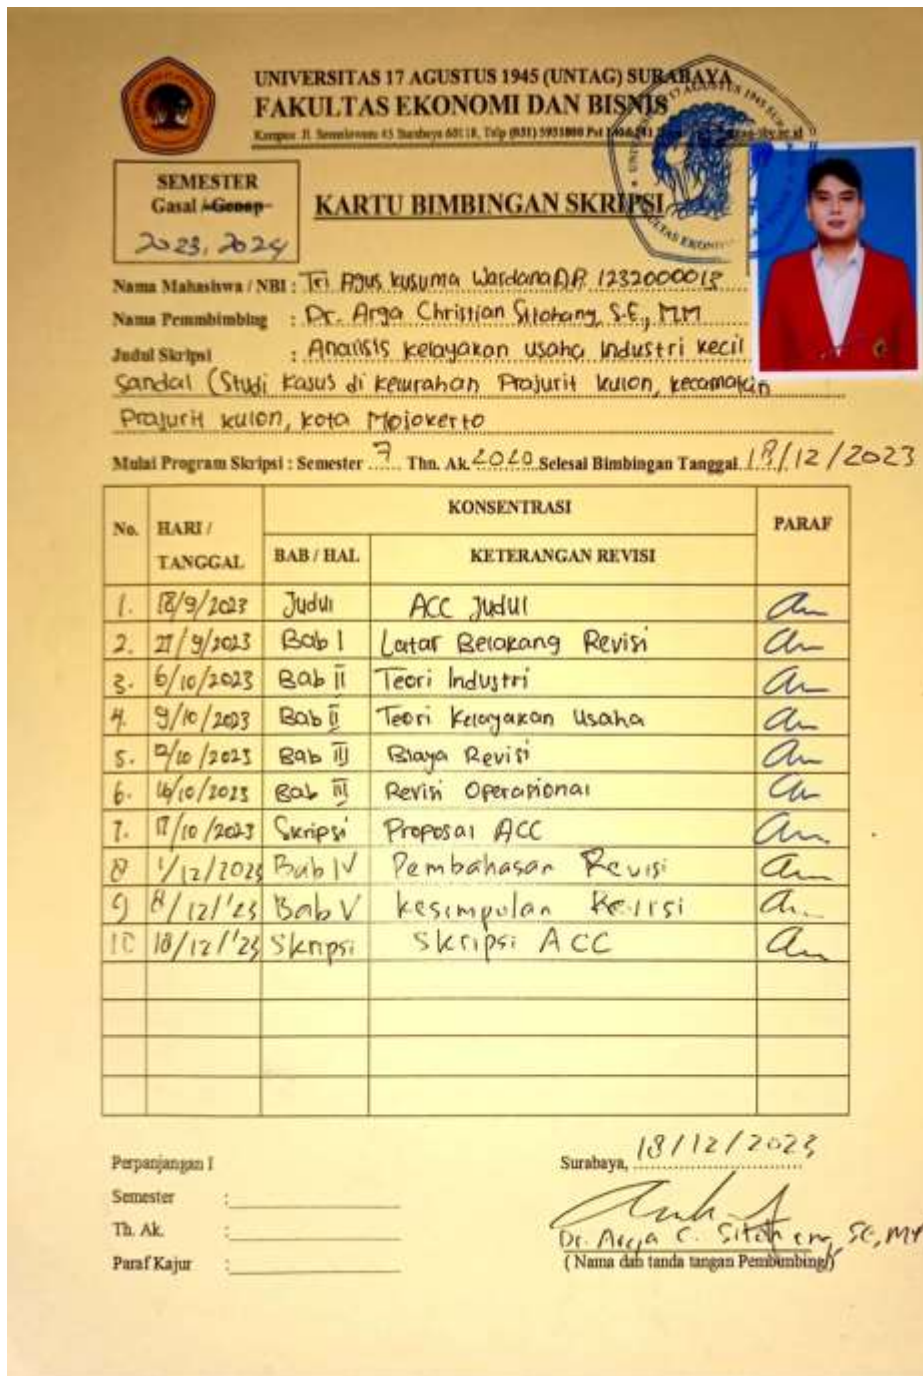 UNIVERSITAS 17 AGUSTUS 1945 (UNTAG) SURABAYA
FAKULTAS EKONOMI DAN BISNIS
Kampus: Jl. Semolowaru 45 Surabaya 60118, Telp (031) 5931800
SEMESTER
Gasal - Genap
2023, 2024
KARTU BIMBINGAN SKRIPSI
Nama Mahasiswa / NBI : Tri Agus Kusuma Wardana D.P. 1232000013
Nama Pemmbimbing : Dr. Arga Christian Sitohang, S.E., MM
Judul Skripsi : Analisis kelayakan usaha industri kecil
Sandal (Studi kasus di kelurahan Prajurit kulon, kecamatan
Prajurit kulon, kota Mojokerto
Mulai Program Skripsi : Semester 7 Thn. Ak. 2020 Selesai Bimbingan Tanggal 18/12/2023
No. HARI / TANGGAL KONSENTRASI PARAF
BAB / HAL KETERANGAN REVISI
1. 18/9/2023 Judul ACC Judul
2. 27/9/2023 Bab I Latar Belakang Revisi
3. 6/10/2023 Bab II Teori Industri
4. 9/10/2023 Bab II Teori Kelayakan Usaha
5. /10/2023 Bab III Biaya Revisi
6. 16/10/2023 Bab III Revisi Operasional
7. 17/10/2023 Skripsi Proposal ACC
8 1/12/2023 Bab IV Pembahasan Revisi
9 8/12/'23 Bab V kesimpulan Revisi
10 18/12/'23 Skripsi Skripsi ACC
Perpanjangan I
Semester :
Th. Ak. :
Paraf Kajur :
Surabaya, 18/12/2023
Dr. Arga C. Sitohang, SE, MM
( Nama dan tanda tangan Pembimbing)